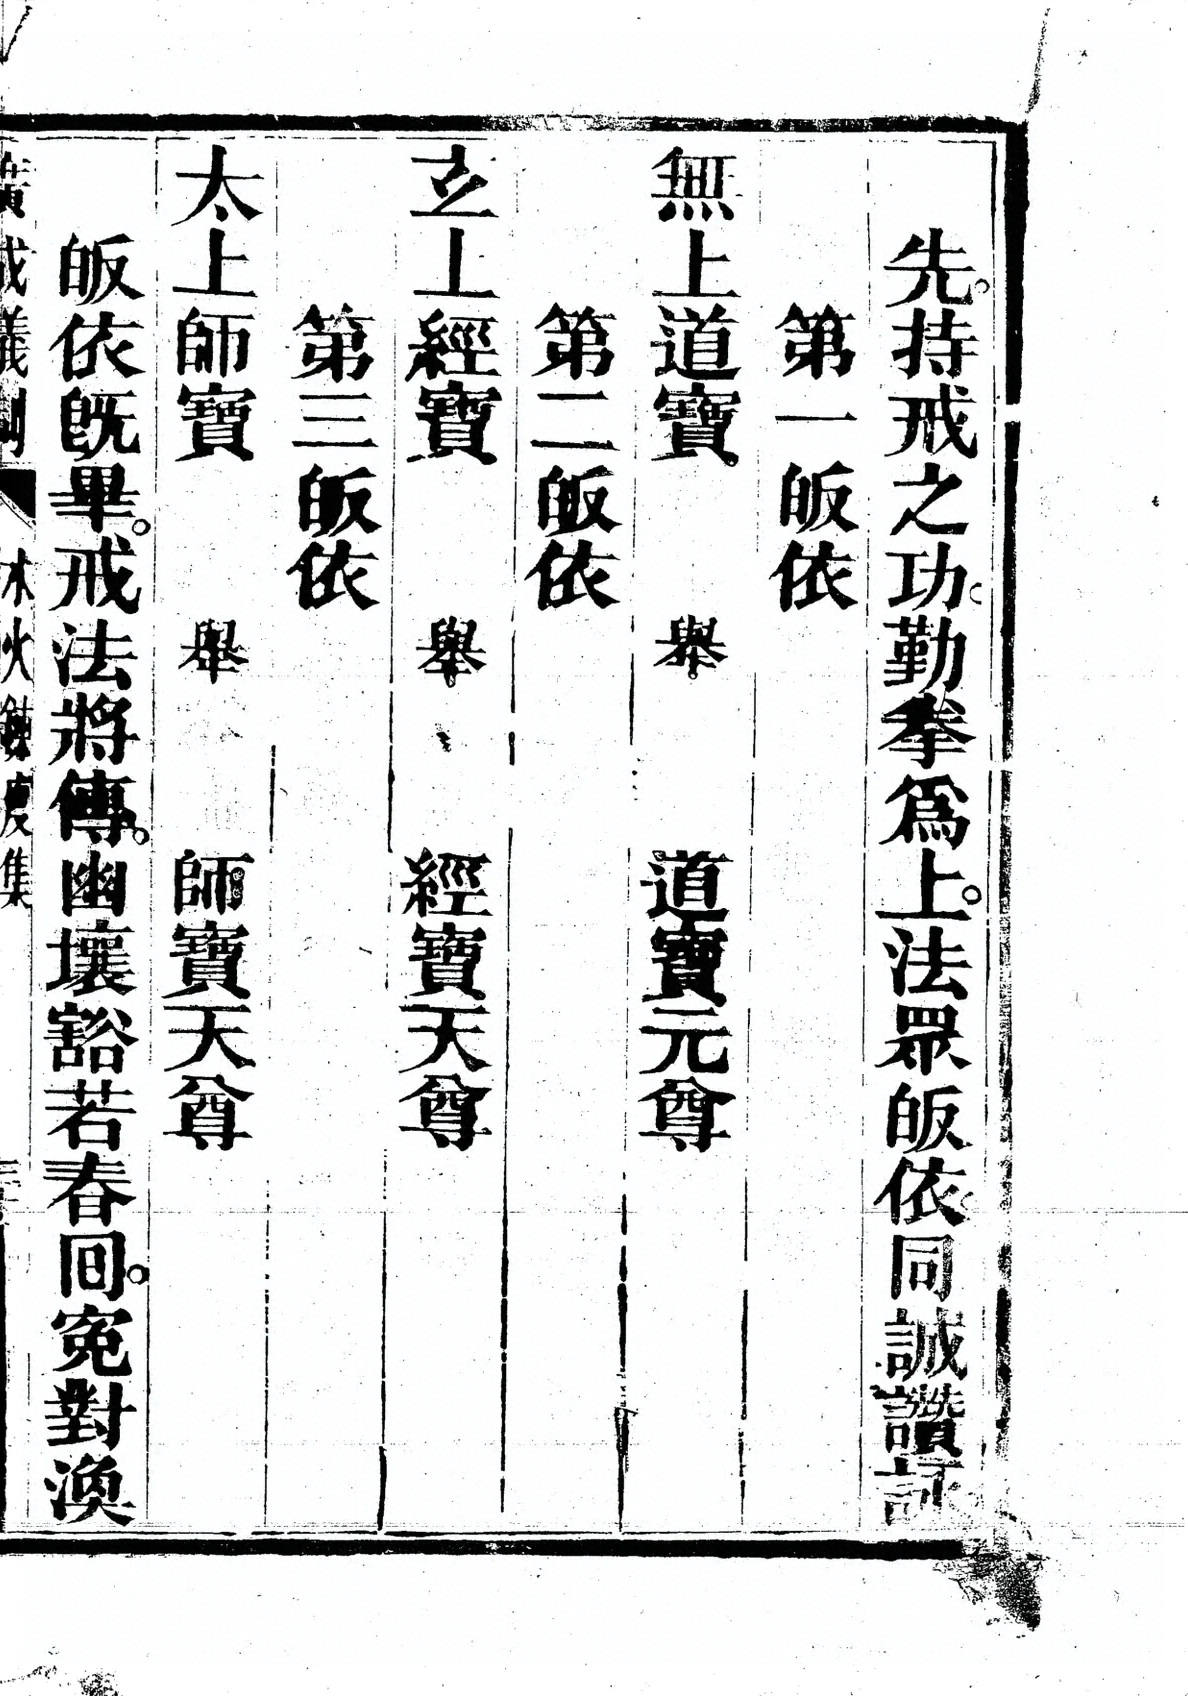 先持戒之功勤拳爲上法眾皈依同誠讚詠
第一皈依
無上道寶 舉 道寶元尊
第二皈依
玄上經寶 舉 經寶天尊
第三皈依
太上師寶 舉 師寶天尊
皈依既畢戒法將傳幽壤豁若春回冤對渙
廣成儀制 水火鍊度集